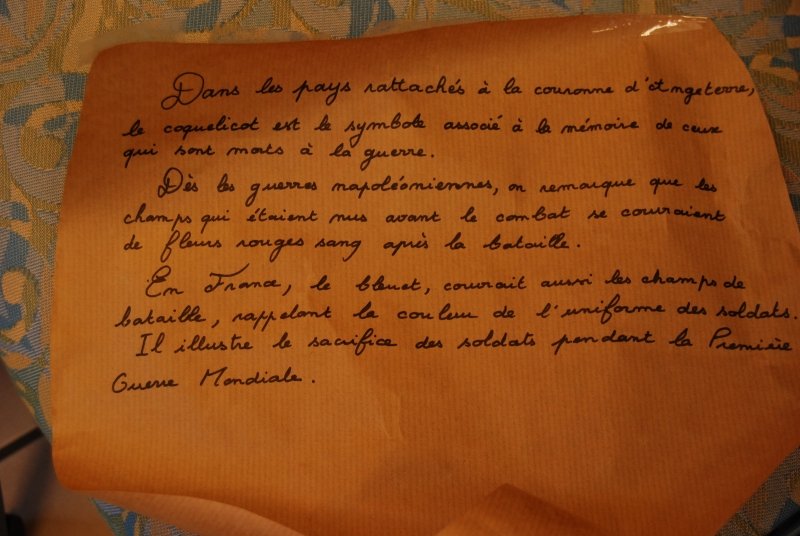 Dans les pays rattachés à la couronne d'Angeterre,
le coquelicot est le symbole associé à la mémoire de ceux
qui sont morts à la guerre.
Dès les guerres napoléoniennes, on remarque que les
champs qui étaient nus avant le combat se couvraient
de fleurs rouges sang après la bataille.
En France, le bleuet, couvrait aussi les champs de
bataille, rappelant la couleur de l'uniforme des soldats.
Il illustre le sacrifice des soldats pendant la Première
Guerre Mondiale.